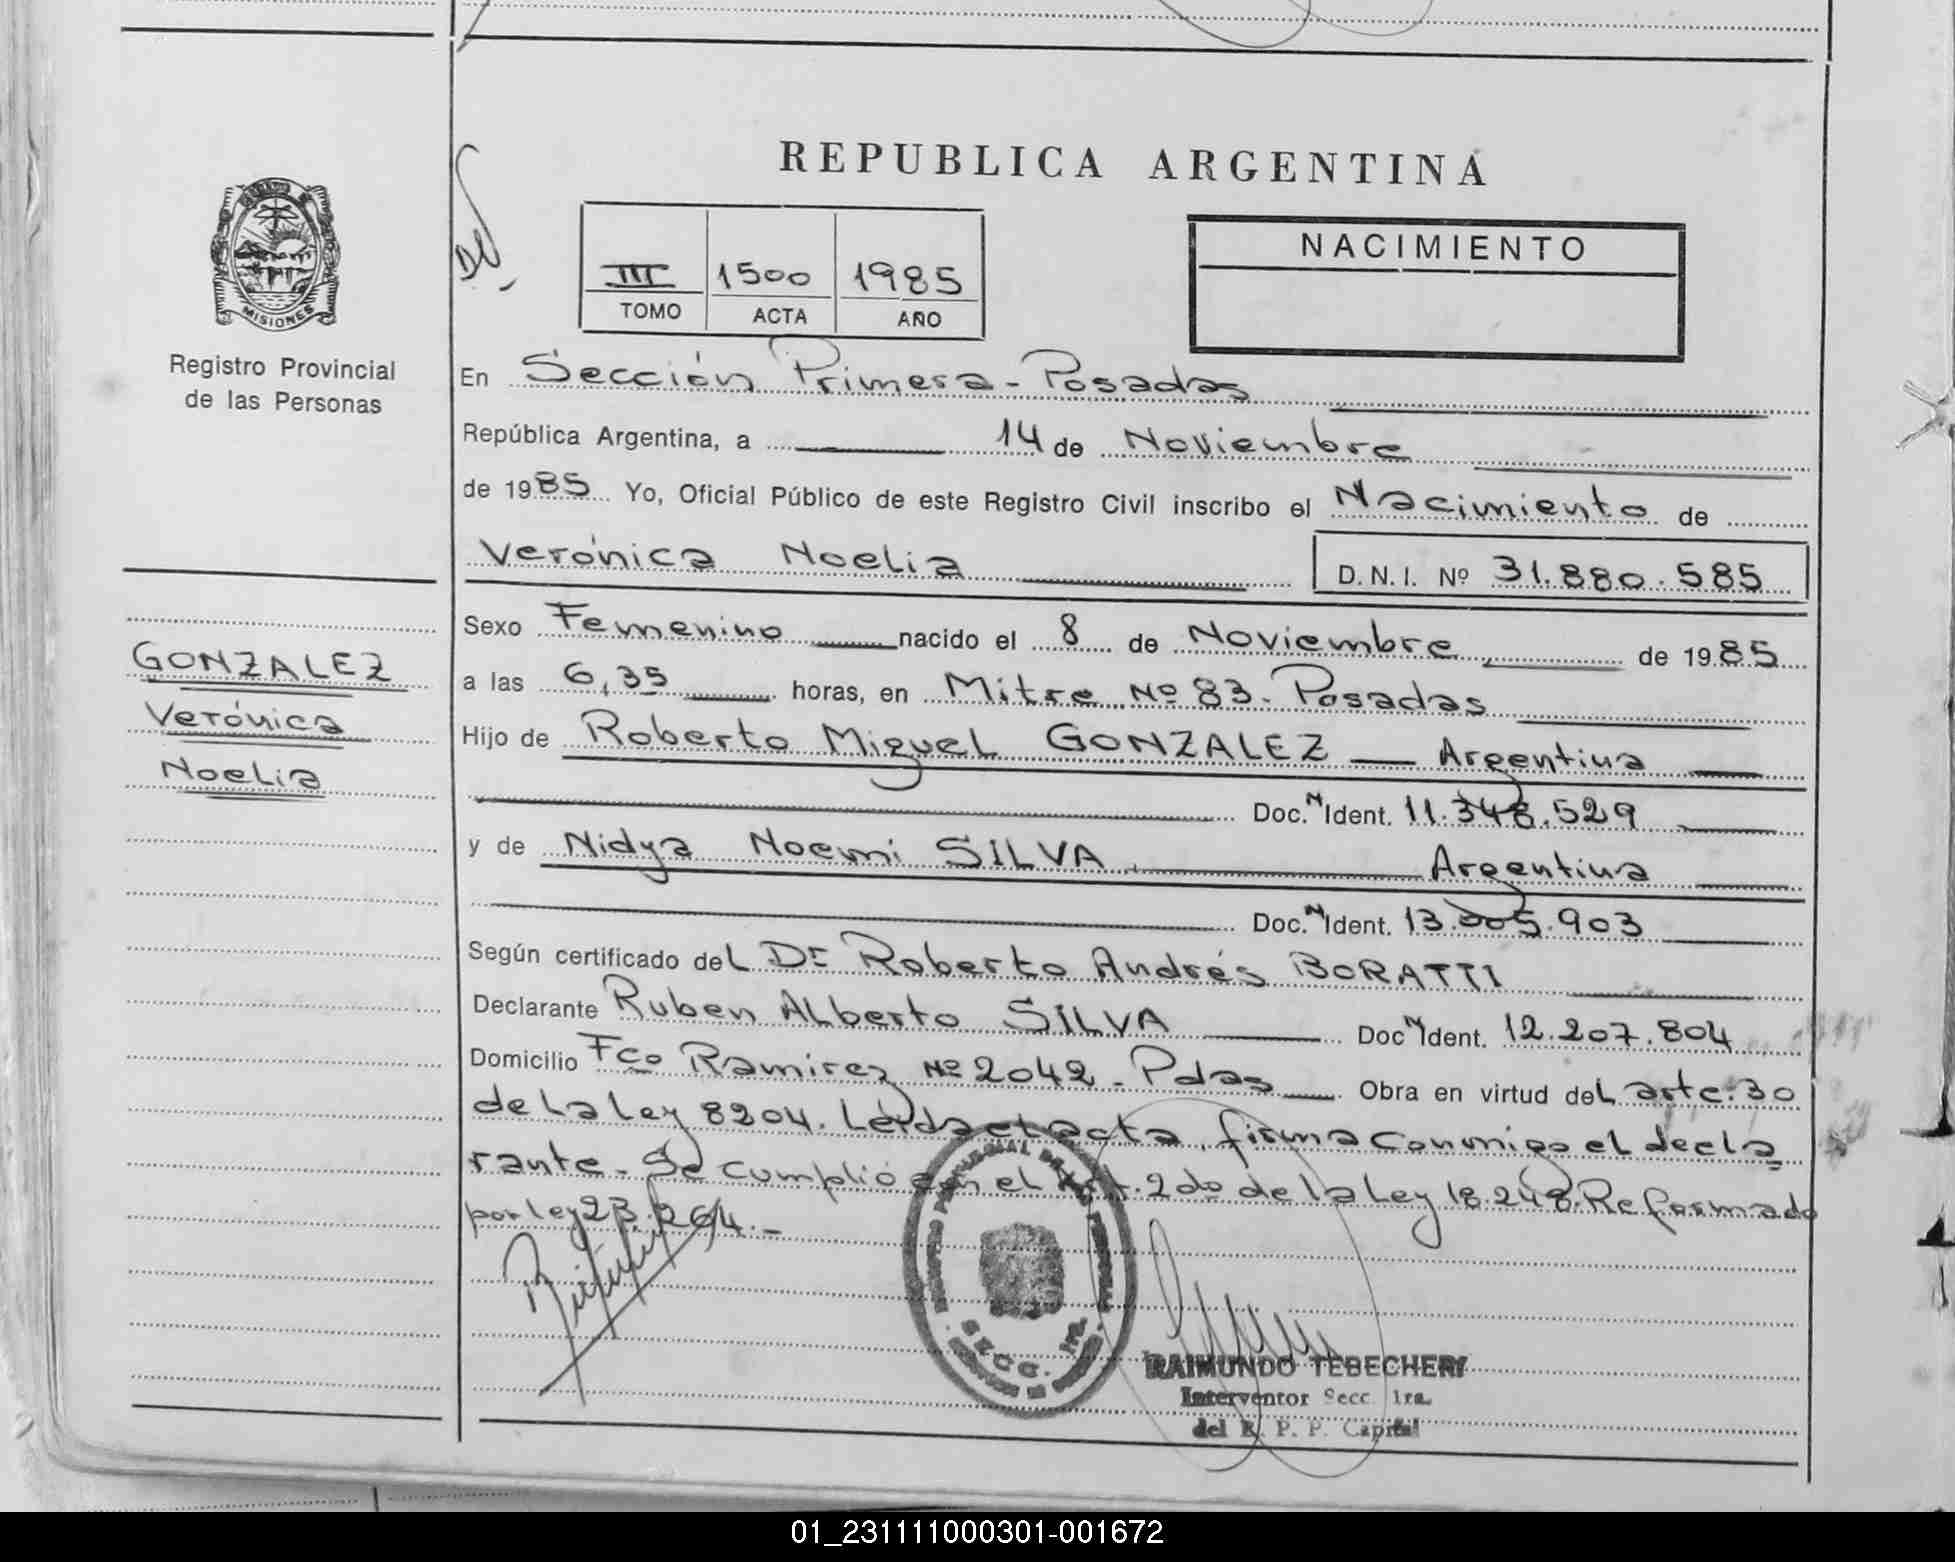 REPUBLICA ARGENTINA
MISIONES
Registro Provincial
de las Personas
III 1500 1985
TOMO ACTA AÑO
NACIMIENTO
En Sección Primera - Posadas
República Argentina, a 14 de Noviembre
de 1985 Yo, Oficial Público de este Registro Civil inscribo el Nacimiento de
Verónica Noelia D.N.I. Nº 31.880.585
Sexo Femenino nacido el 8 de Noviembre de 1985
a las 6,35 horas, en Mitre Nº 83. Posadas
Hijo de Roberto Miguel GONZALEZ Argentina
Doc. N Ident. 11.348.529
y de Nidya Noemi SILVA Argentina
Doc. N Ident. 13.005.903
Según certificado del Dr Roberto Andrés BORATTI
Declarante Ruben Alberto SILVA Doc N Ident. 12.207.804
Domicilio Fco Ramirez Nº 2042 - Pdas Obra en virtud del artc. 30
de la ley 8204. Leída el acta, firma conmigo el decla
rante - Se cumplió con el Art. 2do de la Ley 18.248. Reformado
por ley 23.264. -
GONZALEZ
Verónica
Noelia
SECC. 1ra.
RAIMUNDO TEBECHERI
Interventor Secc. 1ra.
del R. P. P. Capital
01_231111000301-001672